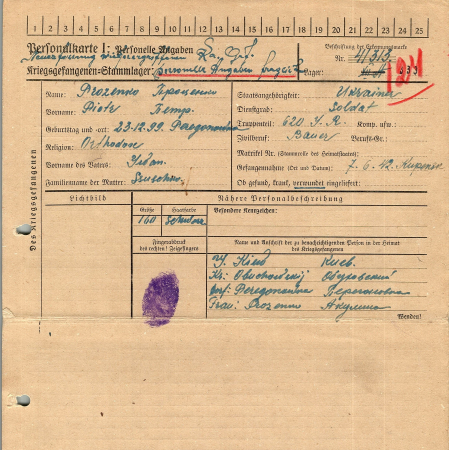 1 2 3 4 5 6 7 8 9 10 11 12 13 14 15 16 17 18 19 20 21 22 23 24 25
Personalkarte I: Personelle Angaben
Beschriftung der Erkennungsmarke
Nr.
Kriegsgefangenen-Stammlager: personelle Angaben
Lager:
Des Kriegsgefangenen
Name: Prozenko Проценко
Vorname: Piotr Петр.
Geburtstag und -ort: 23.12.99. Peregonowka
Religion: Orthodox
Vorname des Vaters: Iwan.
Familienname der Mutter:
Staatsangehörigkeit: Ukraine
Dienstgrad: Soldat
Truppenteil: 620 I.R. Komp. usw.:
Zivilberuf: Bauer Berufs-Gr.:
Matrikel Nr. (Stammrolle des Heimatstaates):
Gefangennahme (Ort und Datum): 7.6.42.
Ob gesund, krank, verwundet eingeliefert:
Lichtbild
Nähere Personalbeschreibung
Größe Haarfarbe Besondere Kennzeichen:
160 schwarz
Fingerabdruck
des rechten ! Zeigefingers
Name und Anschrift der zu benachrichtigenden Person in der Heimat
des Kriegsgefangenen
Kiew Киев.
Kr: Obuchowskij Обуховский
Dorf: Peregonowka Перегоновка
Frau: Prozenko Акулина
Wenden!